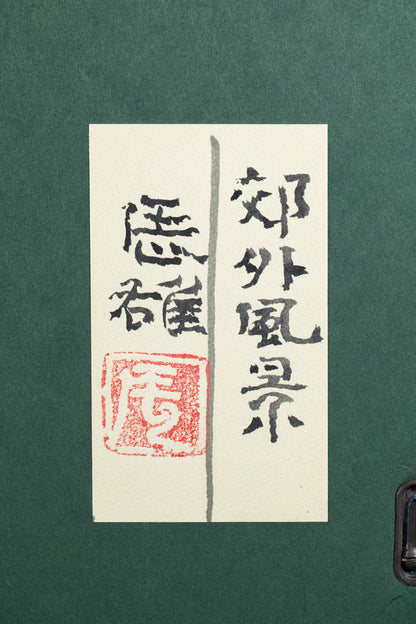 郊外風景
雄